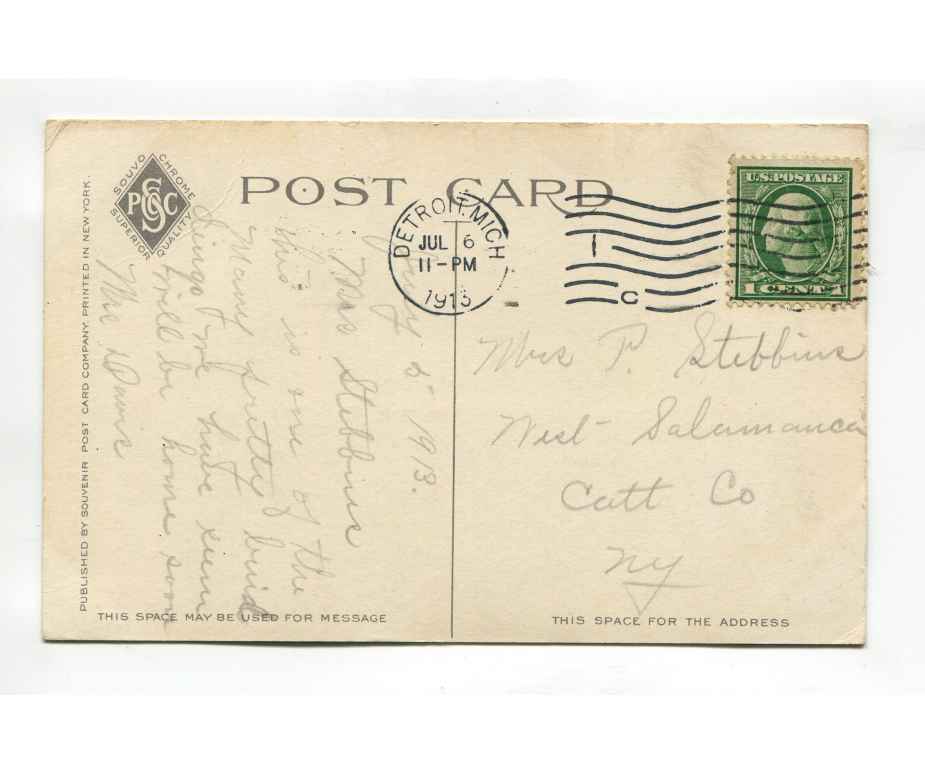 POST CARD
SOUVO CHROME
SUPERIOR QUALITY
PSCC
PUBLISHED BY SOUVENIR POST CARD COMPANY. PRINTED IN NEW YORK.
DETROIT, MICH
JUL 6
11-PM
1913
1
C
U.S. POSTAGE
1 CENT 1
July 5 1913.
Mrs Stebbins
this is one of the
Many pretty build
ings we have seen
will be home soon
Mr Davis
Mrs P. Stebbins
West Salamanca
Catt Co
NY
THIS SPACE MAY BE USED FOR MESSAGE
THIS SPACE FOR THE ADDRESS